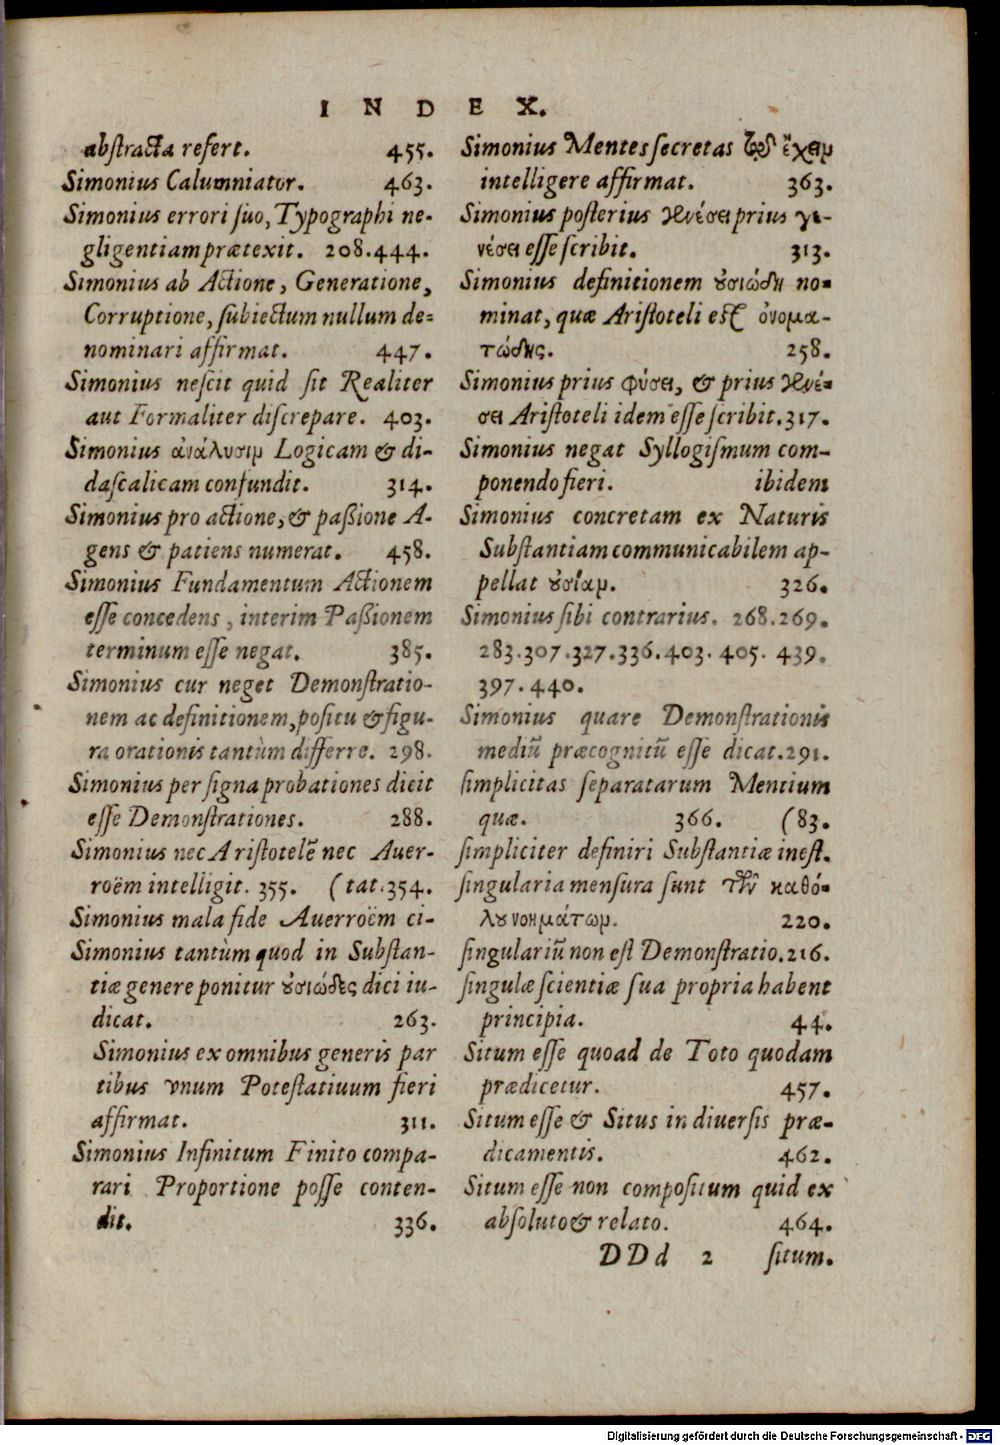 INDEX.
abstracta refert. 455.
Simonius Calumniator. 463.
Simonius errori suo, Typographi ne-
gligentiam prætexit. 208.444.
Simonius ab Actione, Generatione,
Corruptione, subiectum nullum de-
nominari affirmat. 447.
Simonius nescit quid sit Realiter
aut Formaliter discrepare. 403.
Simonius ἀνάλυσιμ Logicam & di-
dascalicam confundit. 314.
Simonius pro actione, & passione A-
gens & patiens numerat. 458.
Simonius Fundamentum Actionem
esse concedens, interim Passionem
terminum esse negat. 385.
Simonius cur neget Demonstratio-
nem ac definitionem, positu & figu-
ra orationis tantùm differre. 298.
Simonius per signa probationes dicit
esse Demonstrationes. 288.
Simonius nec Aristotelē nec Auer-
roëm intelligit. 355. (tat. 354.
Simonius mala fide Auerroëm ci-
Simonius tantùm quod in Substan-
tiæ genere ponitur ȣσιώδες dici iu-
dicat. 263.
Simonius ex omnibus generis par
tibus vnum Potestatiuum fieri
affirmat. 311.
Simonius Infinitum Finito compa-
rari Proportione posse conten-
dit. 336.
Simonius Mentes secretas ἔχειμ
intelligere affirmat. 363.
Simonius posterius γενέσει prius γε-
νέσει esse scribit. 313.
Simonius definitionem ȣσιώδη no-
minat, quæ Aristoteli est ὀνομα-
τώδης. 258.
Simonius prius φύσει, & prius γενέ-
σει Aristoteli idem esse scribit. 317.
Simonius negat Syllogismum com-
ponendo fieri. ibidem
Simonius concretam ex Naturis
Substantiam communicabilem ap-
pellat ȣσίαμ. 326.
Simonius sibi contrarius. 268.269.
283.307.327.336.403.405.439.
397.440.
Simonius quare Demonstrationis
mediū præcognitū esse dicat. 291.
simplicitas separatarum Mentium
quæ. 366. (83.
simpliciter definiri Substantiæ inest.
singularia mensura sunt τῶν καθό-
λȣ νοημάτωμ. 220.
singulariū non est Demonstratio. 216.
singulæ scientiæ sua propria habent
principia. 44.
Situm esse quoad de Toto quodam
prædicetur. 457.
Situm esse & Situs in diuersis præ-
dicamentis. 462.
Situm esse non compositum quid ex
absoluto & relato. 464.
DDd 2 situm.
Digitalisierung gefördert durch die Deutsche Forschungsgemeinschaft - DFG